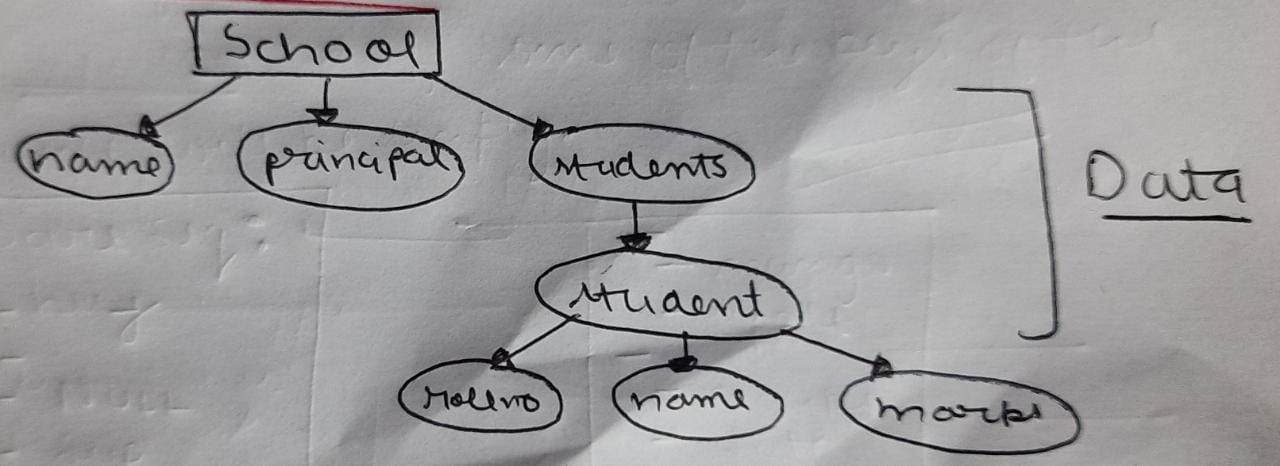 School
name principal students
Data
student
rollno name marks